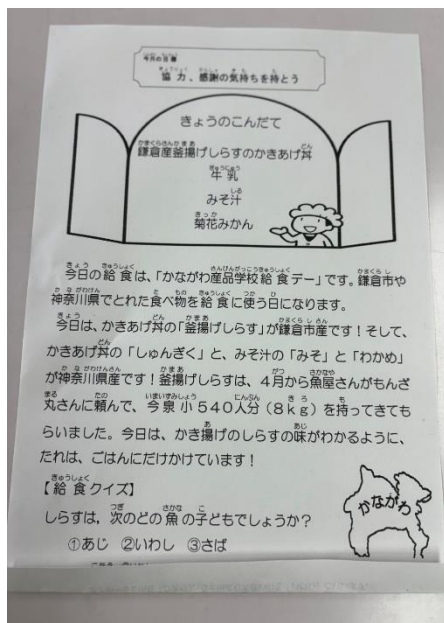 今月の目標
協力、感謝の気持ちを持とう
きょうのこんだて
鎌倉産釜揚げしらすのかきあげ丼
牛乳
みそ汁
菊花みかん
今日の給食は、「かながわ産品学校給食デー」です。鎌倉市や
神奈川県でとれた食べ物を給食に使う日になります。
今日は、かきあげ丼の「釜揚げしらす」が鎌倉市産です！そして、
かきあげ丼の「しゅんぎく」と、みそ汁の「みそ」と「わかめ」
が神奈川県産です！釜揚げしらすは、４月から魚屋さんがもんざ
丸さんに頼んで、今泉小５４０人分（８ｋｇ）を持ってきても
らいました。今日は、かき揚げのしらすの味がわかるように、
たれは、ごはんにだけかけています！
【給食クイズ】
しらすは，次のどの魚の子どもでしょうか？
①あじ ②いわし ③さば
かながわ